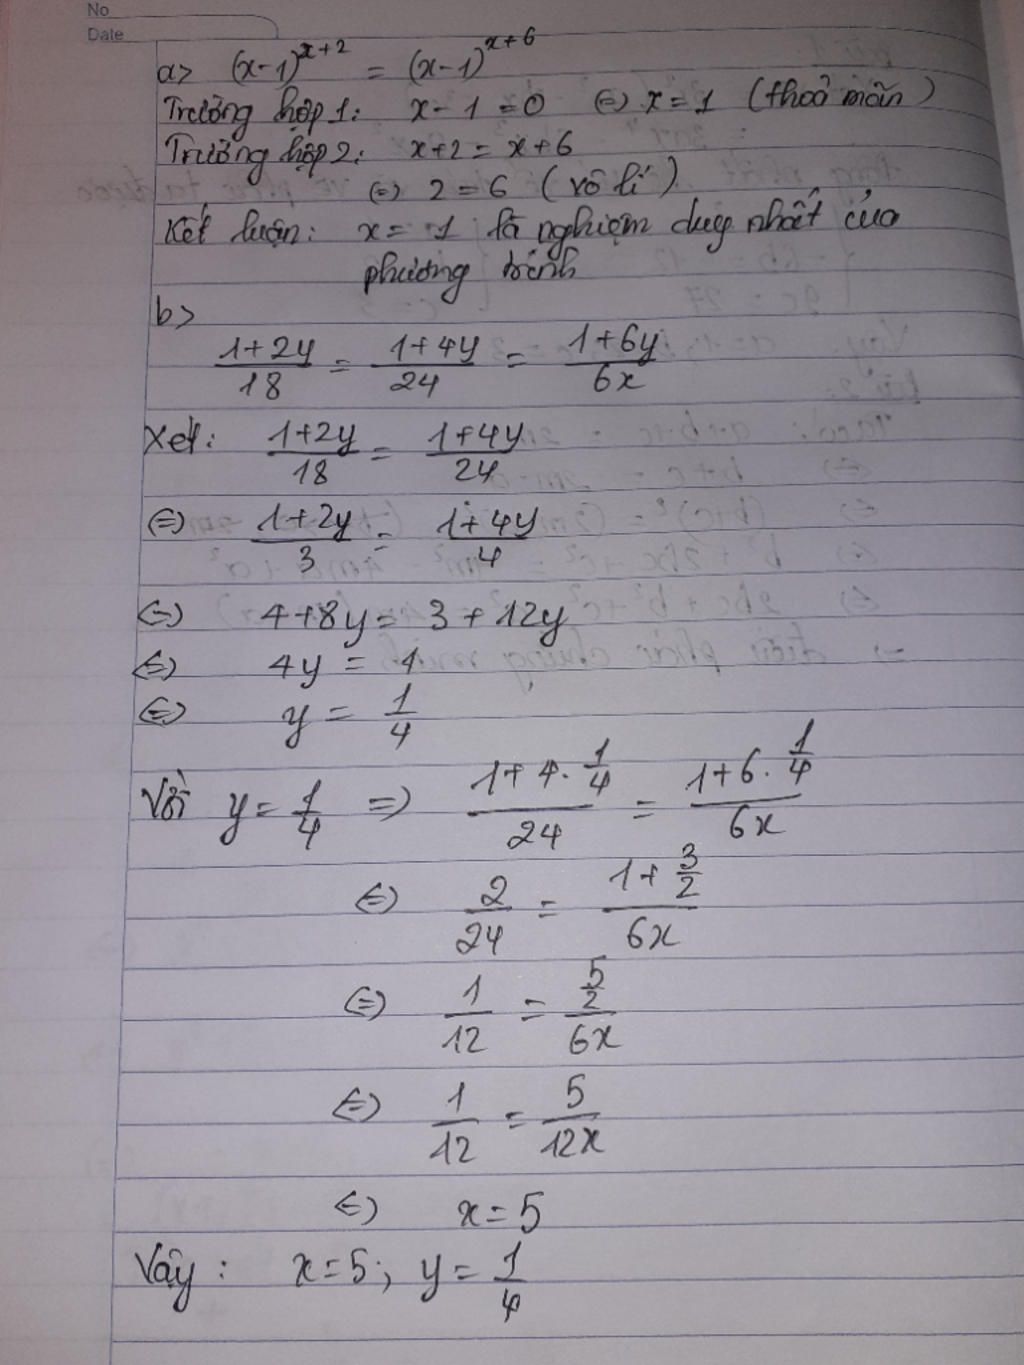 No
Date
a> (x-1)^{x+2} = (x-1)^{x+6}
Trường hợp 1: x-1=0 (=) x=1 (thoả mãn)
Trường hợp 2: x+2 = x+6
(=) 2=6 (vô lí)
Kết luận: x= 1 là nghiệm duy nhất của
phương trình
b>
\frac{1+2y}{18} = \frac{1+4y}{24} = \frac{1+6y}{6x}
Xét: \frac{1+2y}{18} = \frac{1+4y}{24}
(=) \frac{1+2y}{3} = \frac{1+4y}{4}
(=) 4+8y = 3+12y
(=) 4y = 1
(=) y = \frac{1}{4}
Với y = \frac{1}{4} =) \frac{1+4.\frac{1}{4}}{24} = \frac{1+6.\frac{1}{4}}{6x}
(=) \frac{2}{24} = \frac{1+\frac{3}{2}}{6x}
(=) \frac{1}{12} = \frac{\frac{5}{2}}{6x}
(=) \frac{1}{12} = \frac{5}{12x}
(=) x=5
Vậy: x=5; y=\frac{1}{4}